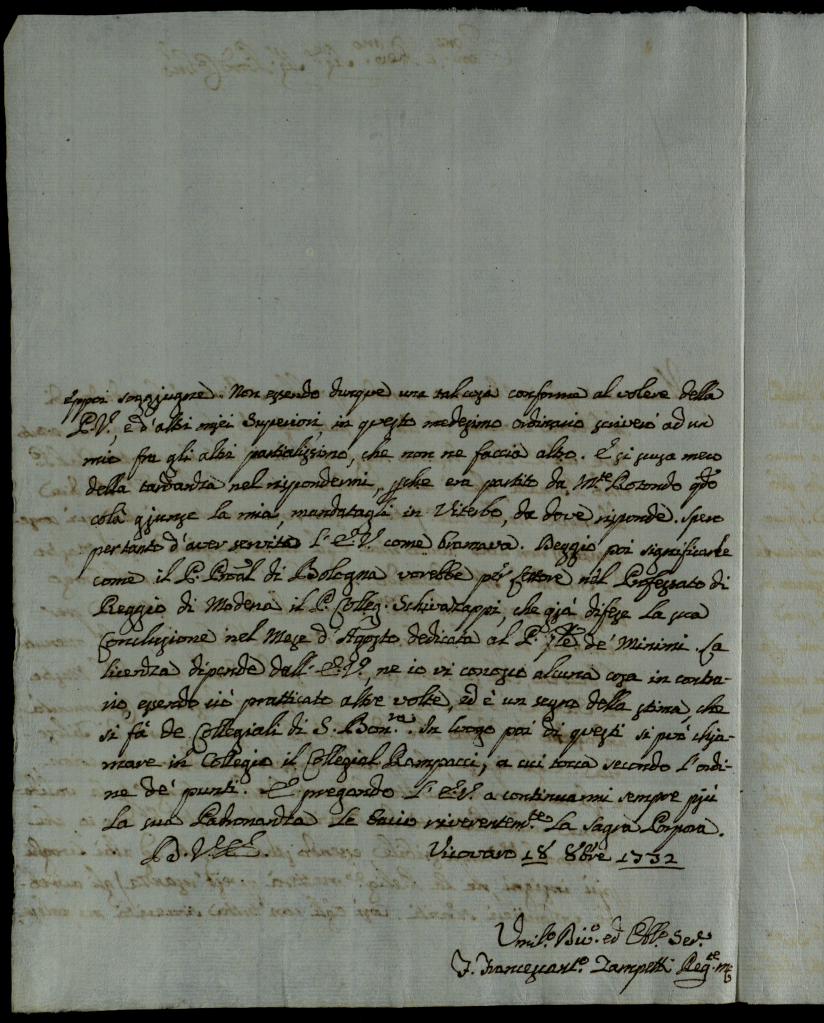 e ppoi soggiugne. Non essendo dunque una tal cosa conforme al volere della
P.V., e d'altri miei Superiori, in questo medesimo ordinario scriverò ad un
mio fra gli altri partialissimo, che non ne faccia altro. E si scusa meco
della tardanza nel rispondermi, perche era partito da M.te Rotondo qdo
colà giunse la mia, mandatagli in Viterbo, da dove risponde. Spero
per tanto d'aver servita l'E.V. come bramava. Deggio poi significarle
come il P. Proãl di Bologna vorebbe per Lettore nel Professato di
Reggio di Modena il P. Colleg. Schivazappi, che già difese la sua
Conclusione nel Mese d'Agosto dedicata al P. de' Minimi. La
licenza dipende dall'E.V., ne io vi conosco alcuna cosa in contra-
rio, essendo ciò pratticato altre volte, ed è un segno della stima, che
si fà de Collegiali di S. Bon.ra. In luogo poi di questi si può chia-
mare in Collegio il Collegial Rampacci, a cui tocca secondo l'ordi-
ne de' punti. E pregando l'E.V. a continuarmi sempre più
la sua Padronanza le bacio riverentem.te la Sagra Porpora.
D. V. E.
Vicovaro 18 8bre 1732
Umil.o Div.o ed Obl.o Ser.e
F. Francescant.o Zampetti Reg.te